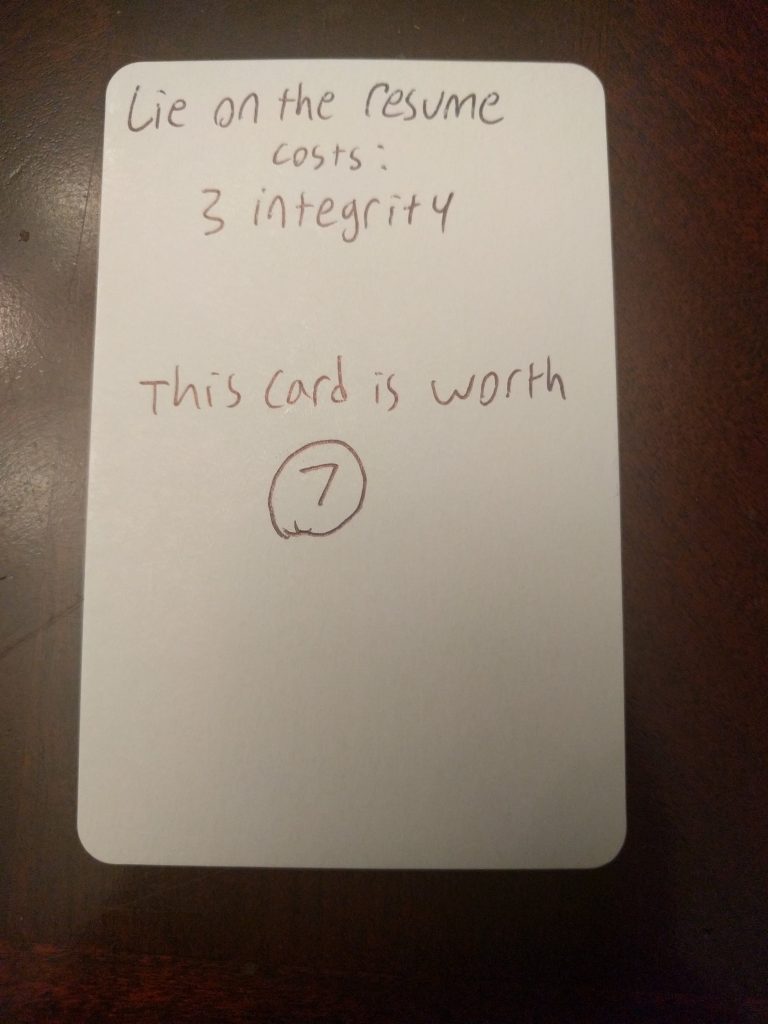 Lie on the resume
costs:
3 integrity
This card is worth
7